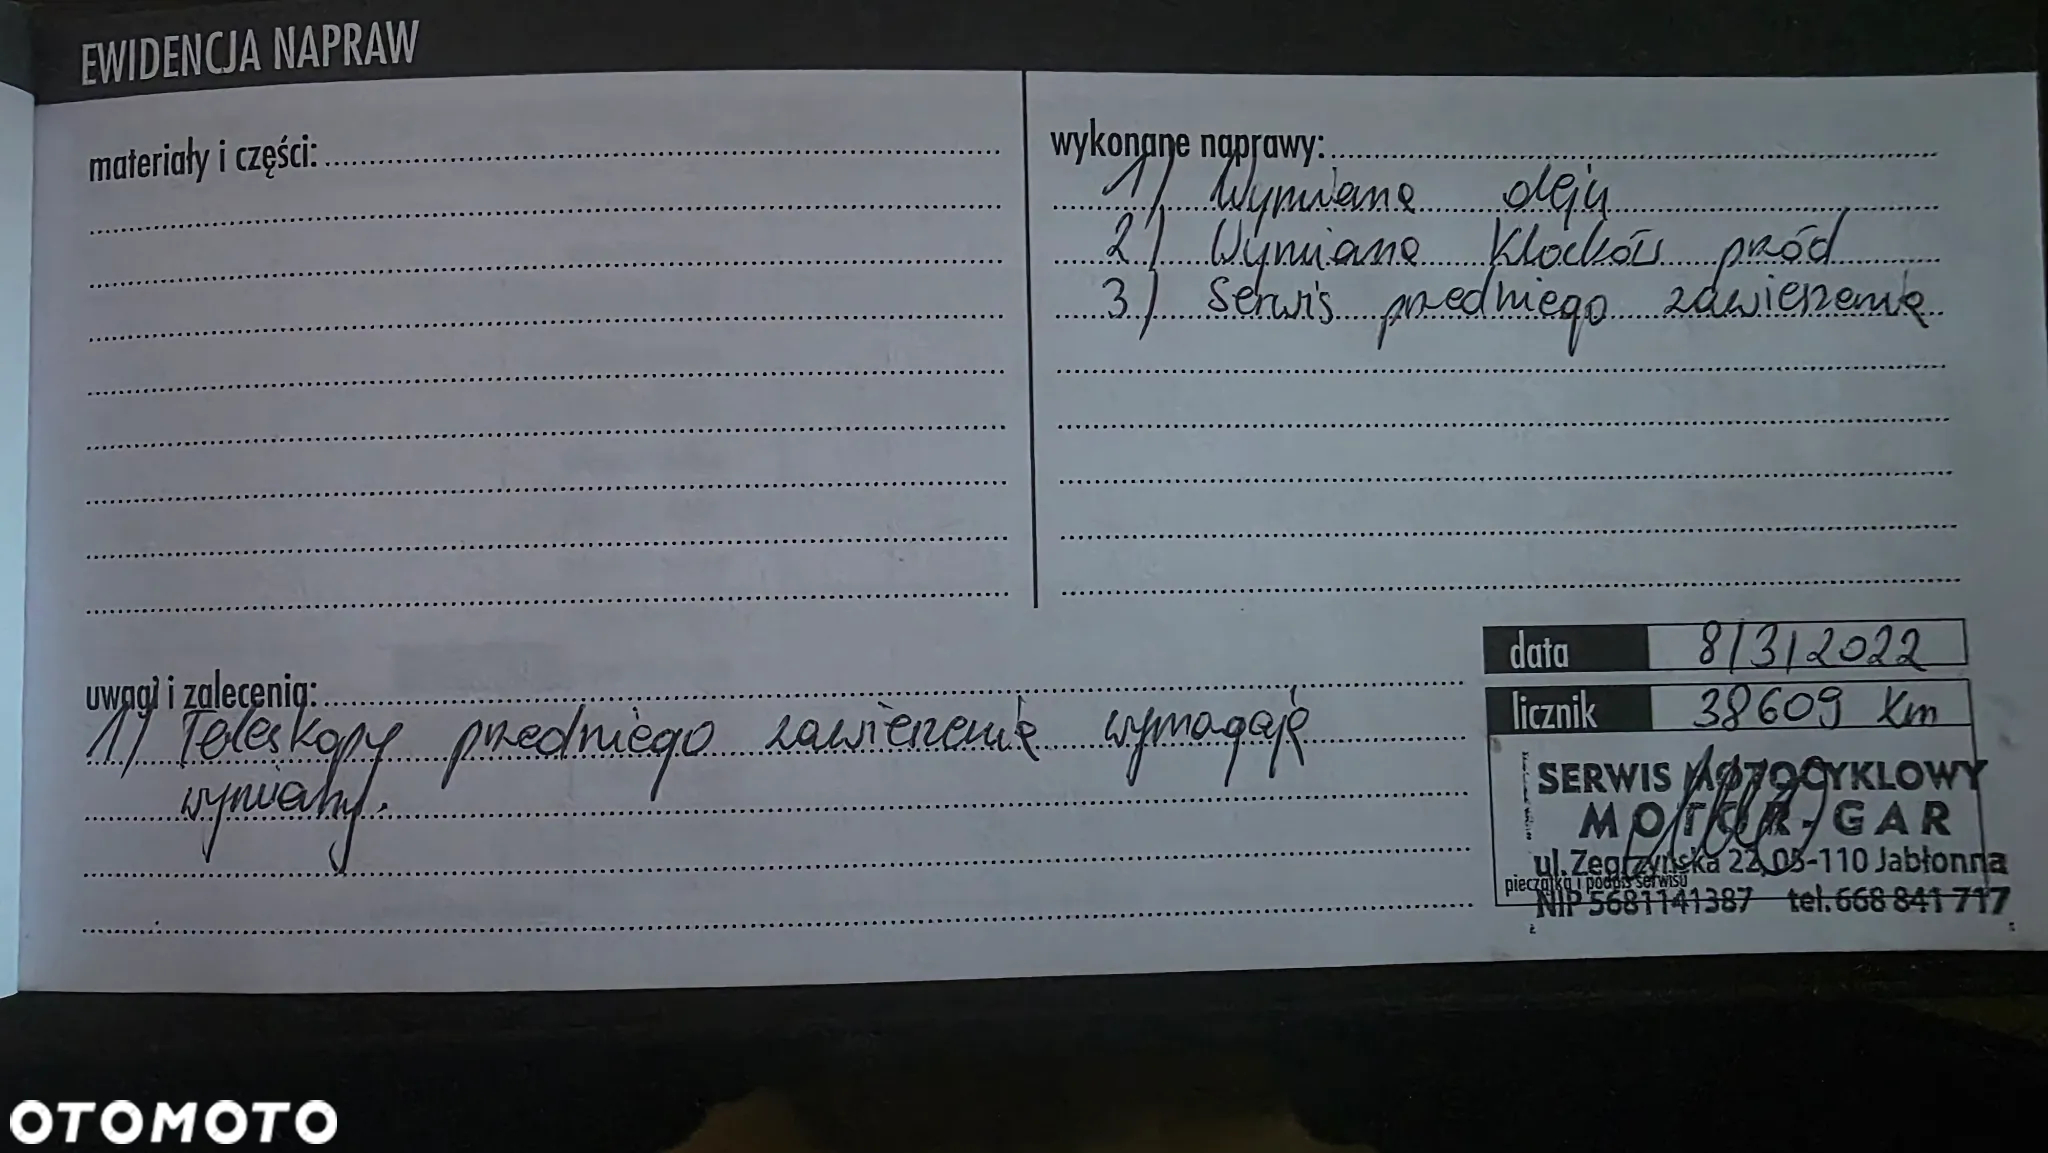 EWIDENCJA NAPRAW
materiały i części:
wykonane naprawy:
1) Wymiana oleju
2) Wymiana klocków przód
3) Serwis przedniego zawieszenia
uwagi i zalecenia:
1) Teleskopy przedniego zawieszenia wymagają
wymiany.
data 8/3/2022
licznik 38609 km
SERWIS MOTOCYKLOWY
MOTOR-GAR
ul. Zegrzyńska 22, 05-110 Jabłonna
pieczątka i podpis serwisu
NIP 5681141387 tel. 668 841 717
OTOMOTO